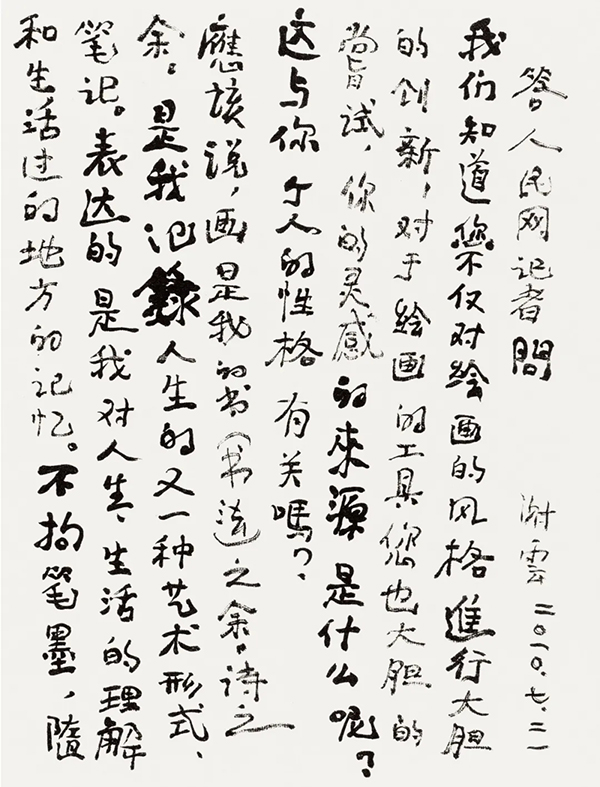 答人民网记者問 谢雲二〇一〇.七.二一
我们知道您不仅对绘画的风格進行大胆
的创新，对于绘画的工具您也大胆的
嘗试，你的灵感的來源是什么呢？
这与你个人的性格有关嗎？
應该说，画是我的书（书法）之余，诗之
余。是我记錄人生的又一种艺术形式、
笔记。表达的是我对人生、生活的理解
和生活过的地方的记忆。不拘笔墨，隨